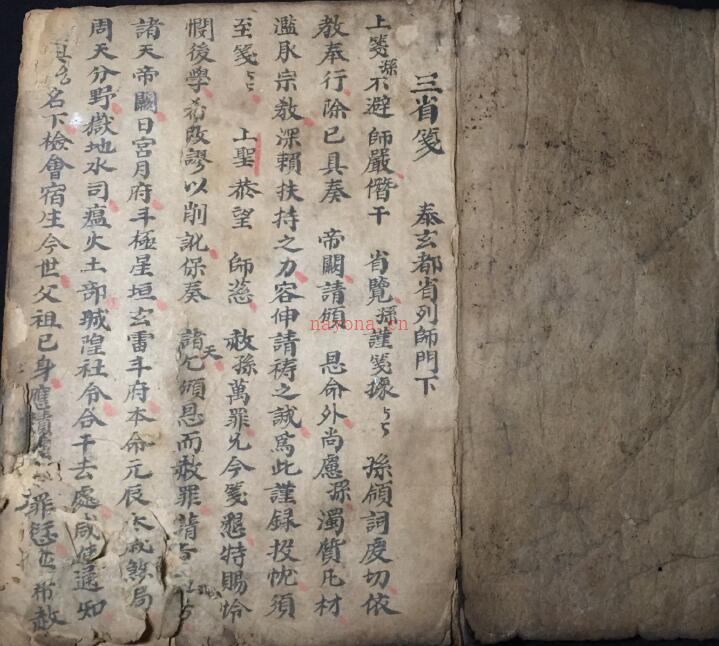 三省箋　　奉玄都省列師門下
上箋孫不避師嚴僭干　省覽孫謹箋據　孫領詞虔切依
教奉行除已具奏　帝闕請頒　恩命外尚慮孫濁質凡材
濫叅宗教深賴扶持之力容伸請祷之誠爲此謹録投忱須
至箋　上聖恭望　師慈　赦孫萬罪允今箋懇特賜怜
憫後學希改謬以削訛保奏　諸天乞頒恩而赦罪請
諸天帝闕日宮月府斗極星垣玄雷斗府本命元辰太歲煞局
周天分野嶽地水司瘟火土部城隍社令合干去處咸使通知
名下檢會宿生今世父祖己身應 罪 赦
nayona.cn